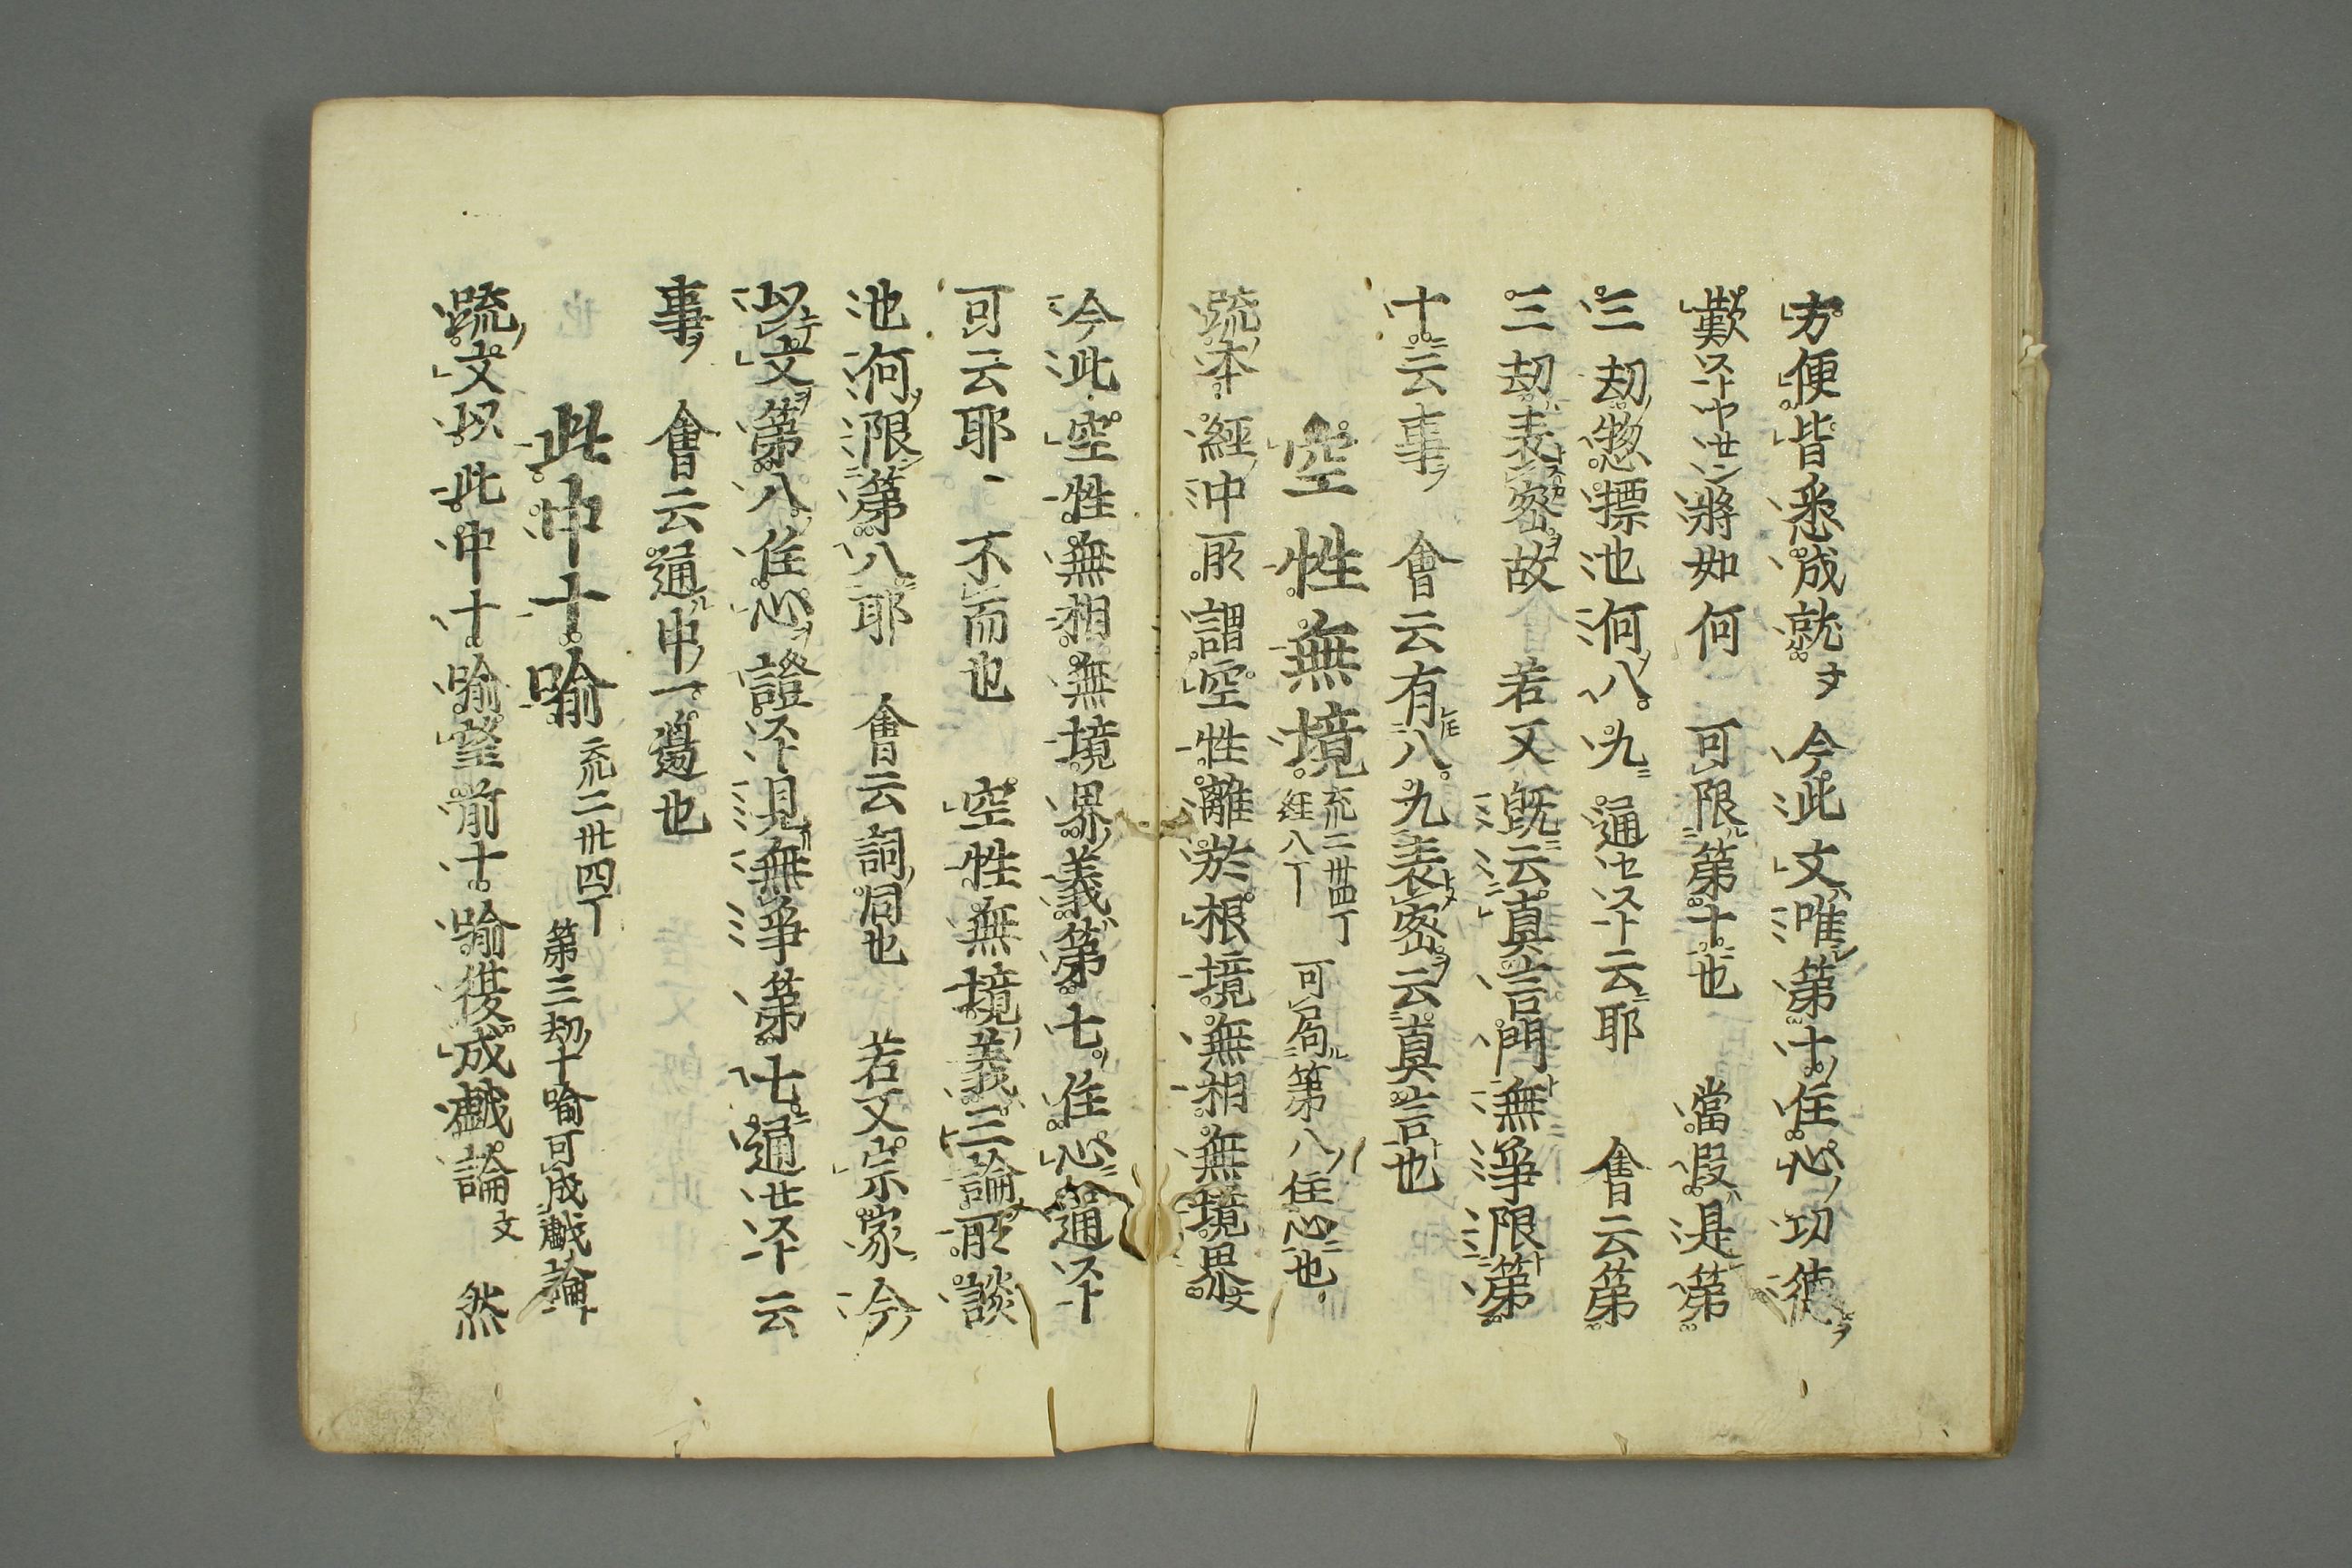 方便皆悉成就文今此文唯第十住心功德
歎将如何可限第十也當段是第
三劫惣摽地何八九通云耶會云第
三劫表密故若又既云真言門無淨限第
十云事會云有八九表密云真言也
空性無境
疏二丗四丁
經八丁
可局第八住心也
疏本經中所謂空性離於根境無相無境界文
今此空性無相無境界義第七住心通
可云耶不而也空性無境義三論所談
池何限第八耶會云詞同也若又宗家今
以文第八住心證見無淨第七通云
事會云通申一邊也
此中十喻
疏二丗四丁
第三劫十喻可成戲論
疏文以此中十喻望前十喻復成戲論文然